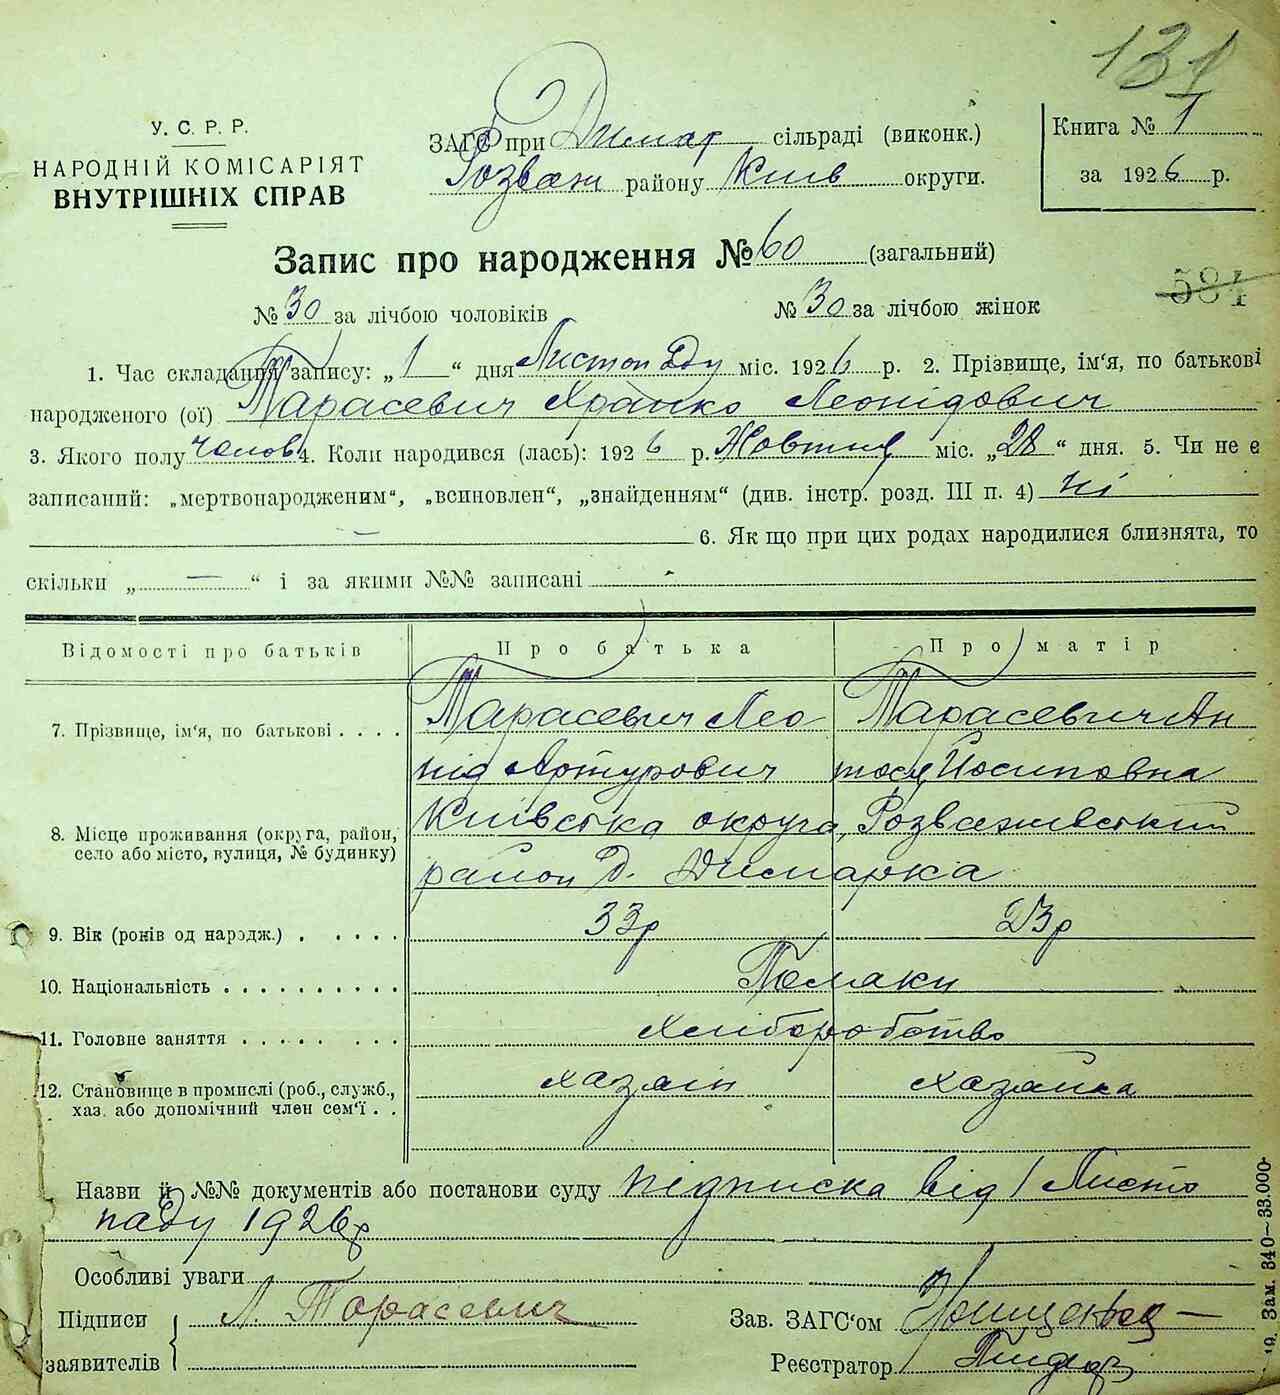 131
У. С. Р. Р.
НАРОДНІЙ КОМІСАРІЯТ
ВНУТРІШНІХ СПРАВ
ЗАГС при Димар сільраді (виконк.)
Розваж району Київ округи.
Книга № 1
за 1926 р.
Запис про народження № 60 (загальний)
№ 30 за лічбою чоловіків № 30 за лічбою жінок
584
1. Час складання запису: „1“ дня Листопаду міс. 1926 р. 2. Прізвище, ім'я, по батькові
народженого (ої) Тарасевич Леонідович
3. Якого полу чолов 4. Коли народився (лась): 1926 р. Жовтня міс. „28“ дня. 5. Чи не є
записаний: „мертвонародженим“, „всиновлен“, „знайденням“ (див. інстр. розд. III п. 4) ні
— 6. Як що при цих родах народилися близнята, то
скільки „ — “ і за якими №№ записані -
Відомості про батьків Про батька Про матір
7. Прізвище, ім'я, по батькові . . . . Тарасевич Лео Тарасевич Ан
нід Артурович тося Йосиповна
8. Місце проживання (округа, район, село або місто, вулиця, № будинку) Київська округа, Розважівський
район Д. Димарка
9. Вік (років од нарoдж.) . . . . . 33р 23р
10. Національність . . . . . . . . . . Поляки
11. Головне заняття . . . . . . . . Хліборобство
12. Становище в промислі (роб., служб., хазяін хазяйка
хаз. або допомічний член сем'ї . .
Назви й №№ документів або постанови суду підписка від 1 Листо
паду 1926р
Особливі уваги
Підписи Л. Тарасевич Зав. ЗАГС'ом
заявителів Реєстратор
Зам. 340—33.000